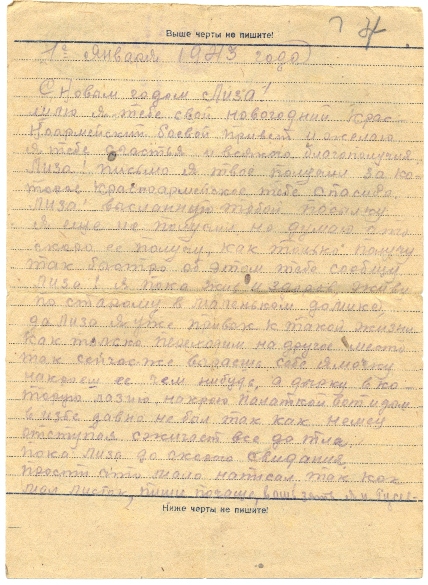 Выше черты не пишите!
1е Января 1943 года
С новым годом Лиза!
шлю я тебе свой новогодний крас-
ноармейский боевой привет и желаю
я тебе счастья и всякого благополучия
Лиза! письмо я твое получил за ко-
торое красноармейское тебе спасибо.
Лиза! высланную тобой посылку
я еще не получил но думаю что
скоро ее получу, как только получу
так быстро об этом тебе сообщу
Лиза! я пока жив и здоров, живу
по старому в маленьком домике,
да Лиза я уже привык к такой жизни
как только переходим на другое место
так сейчас же копаешь себе ямочку
накроеш ее чем нибудь, а дырку в ко-
торую лазию накрою палаткой вот и дом
в избе давно не был так как немец
отступая сжигает все до тла,
пока Лиза до скорого свидания
прости что мало написал, так как
мал листок, пиши почаще,
Ниже черты не пишите!